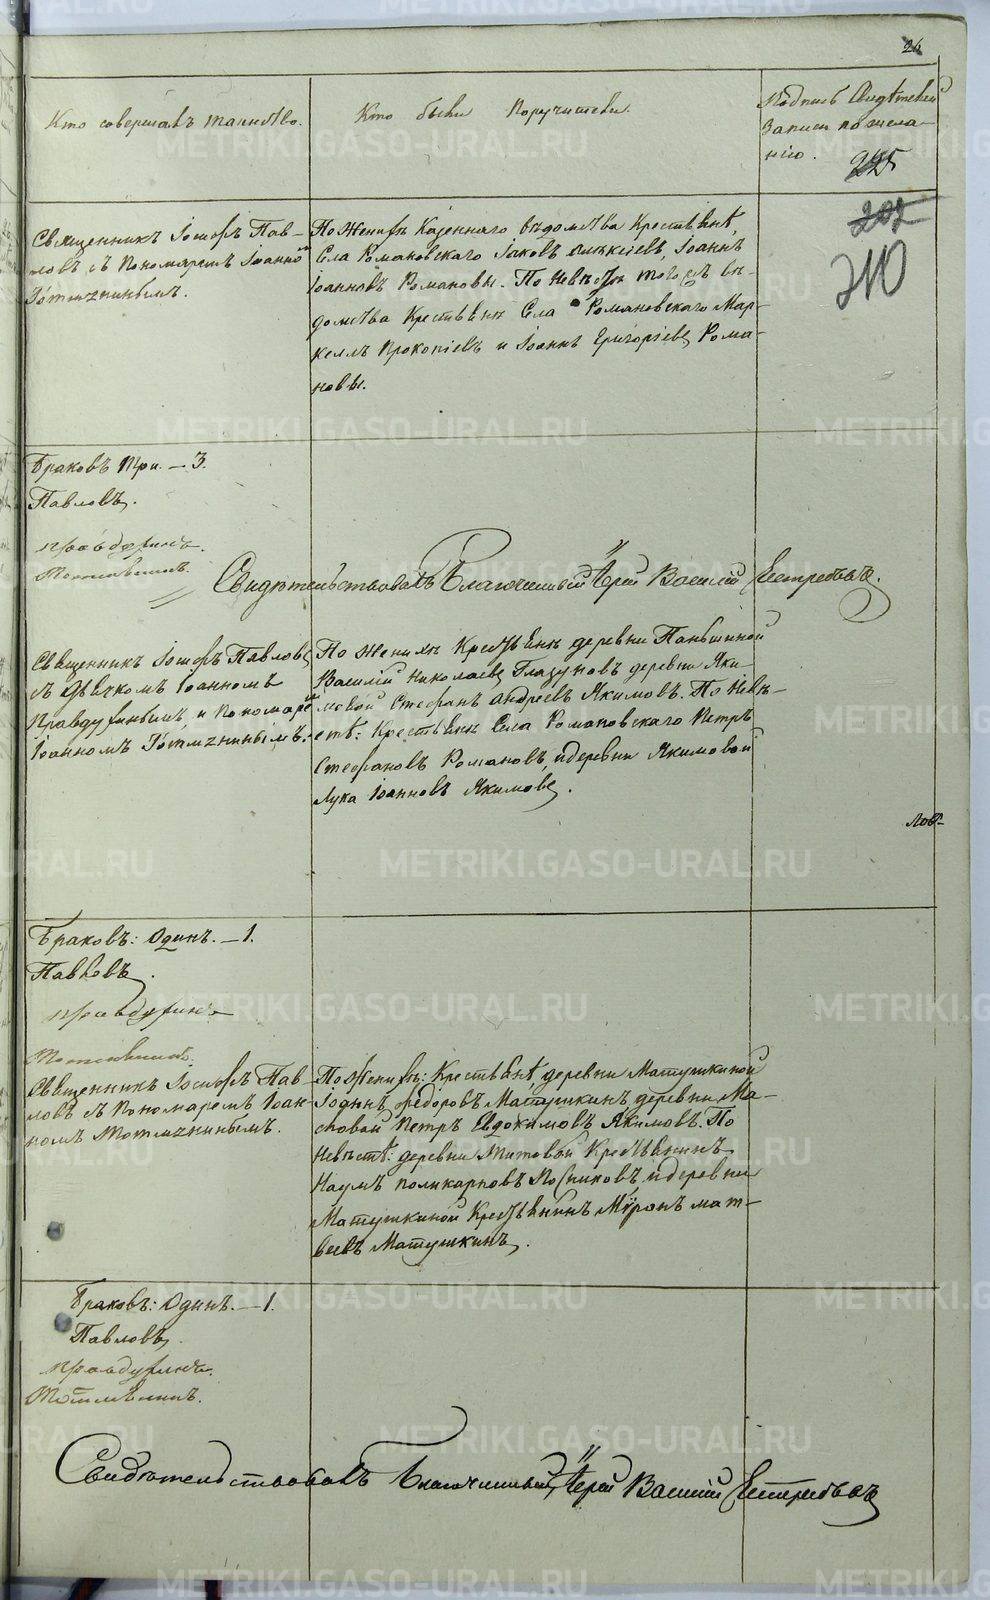 26
Кто совершалъ таинство.
Кто были Поручители.
Подпись Свидѣтелей
Записи по жела-
нію.
225
202
210
Священникъ Іосифъ Пав-
ловъ съ Пономаремъ Іоанномъ
По Женихѣ Казеннаго вѣдомства Крестьяне,
Села Романовскаго Іаковъ Алексіевъ, Іоаннъ
Іоанновъ Романовы. По Невѣстѣ того жъ вѣ-
домства Крестьяне Села Романовскаго Мар-
келлъ Прокопіевъ и Іоаннъ Григоріевъ Рома-
новы.
Браковъ Три. – 3.
Павловъ.
Правдухинъ.
Свидѣтельствовалъ Благочинный Іерей Василій
Священникъ Іосифъ Павловъ
съ Дьячкомъ Іоанномъ
Правдухинымъ, и Пономаремъ
Іоанномъ
По Женихѣ Крестьяне деревни Паньшиной
Василій Николаевъ Глазуновъ деревни Яки-
мовой Стефанъ Андреевъ Якимовъ. По Невѣ-
стѣ: Крестьяне Села Романовскаго Петръ
Стефановъ Романовъ, и деревни Якимовой
Лука Іоанновъ Якимовъ.
Браковъ: Одинъ. – 1.
Павловъ.
Правдухинъ
Священникъ Іосифъ Пав-
ловъ съ Пономаремъ Іоан-
номъ
По Женихѣ: Крестьяне, деревни Матушкиной
Федоровъ Матушкинъ, деревни Ма-
словой Петръ Евдокимовъ Якимовъ. По
Невѣстѣ: деревни Титовой Крестьянинъ
Наумъ Поликарповъ Посниковъ, и деревни
Матушкиной Крестьянинъ Мѵронъ Мат-
веевъ Матушкинъ.
Браковъ: Одинъ. – 1.
Павловъ.
Правдухинъ.
Свидѣтельствовалъ Благочинный, Іерей Василій
METRIKI.GASO-URAL.RU